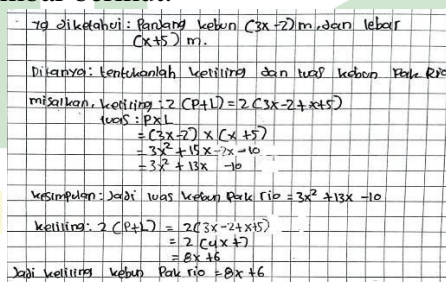 yg diketahui: Panjang kebun (3x-2)m, dan lebar
(x+5) m.
Ditanya: tentukanlah keliling dan luas kebun Pak Rio
misalkan, keliling: 2 (P+L) = 2 (3x-2+x+5)
luas: PxL
= (3x-2) x (x+5)
= 3x² + 15x -2x -10
= 3x² + 13x -10
kesimpulan: Jadi luas kebun Pak rio = 3x² + 13x -10
keliling: 2 (P+L) = 2(3x-2+x+5)
= 2 (4x+7)
= 8x +6
Jadi keliling kebun Pak rio = 8x +6